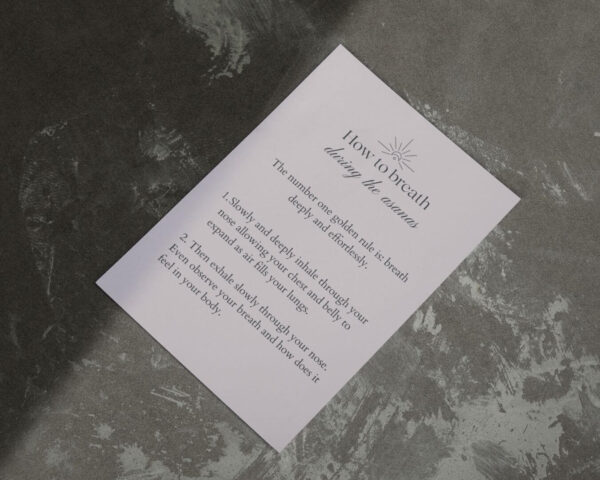 How to breath
during the asanas
The number one golden rule is: breath
deeply and effortlessly.
1. Slowly and deeply inhale through your
nose allowing your chest and belly to
expand as air fills your lungs.
2. Then exhale slowly through your nose.
Even observe your breath and how does it
feel in your body.